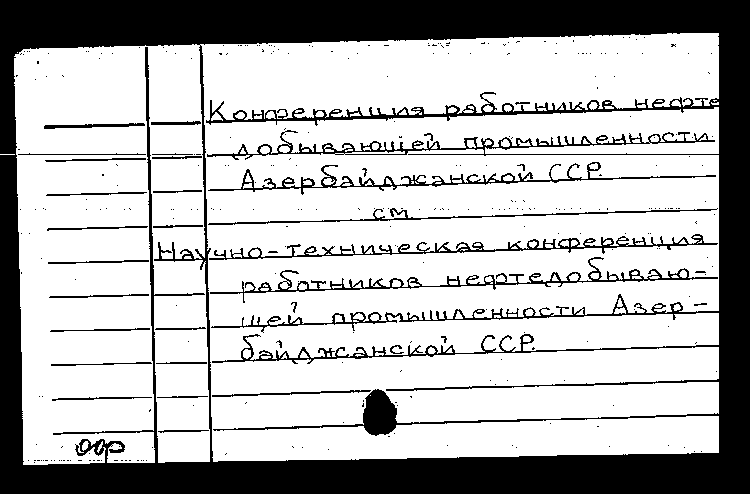 Конференция работников нефте
добывающей промышленности
Азербайджанской ССР.
см.
Научно-техническая конференция
работников нефтедобываю-
щей промышленности Азер-
байджанской ССР.